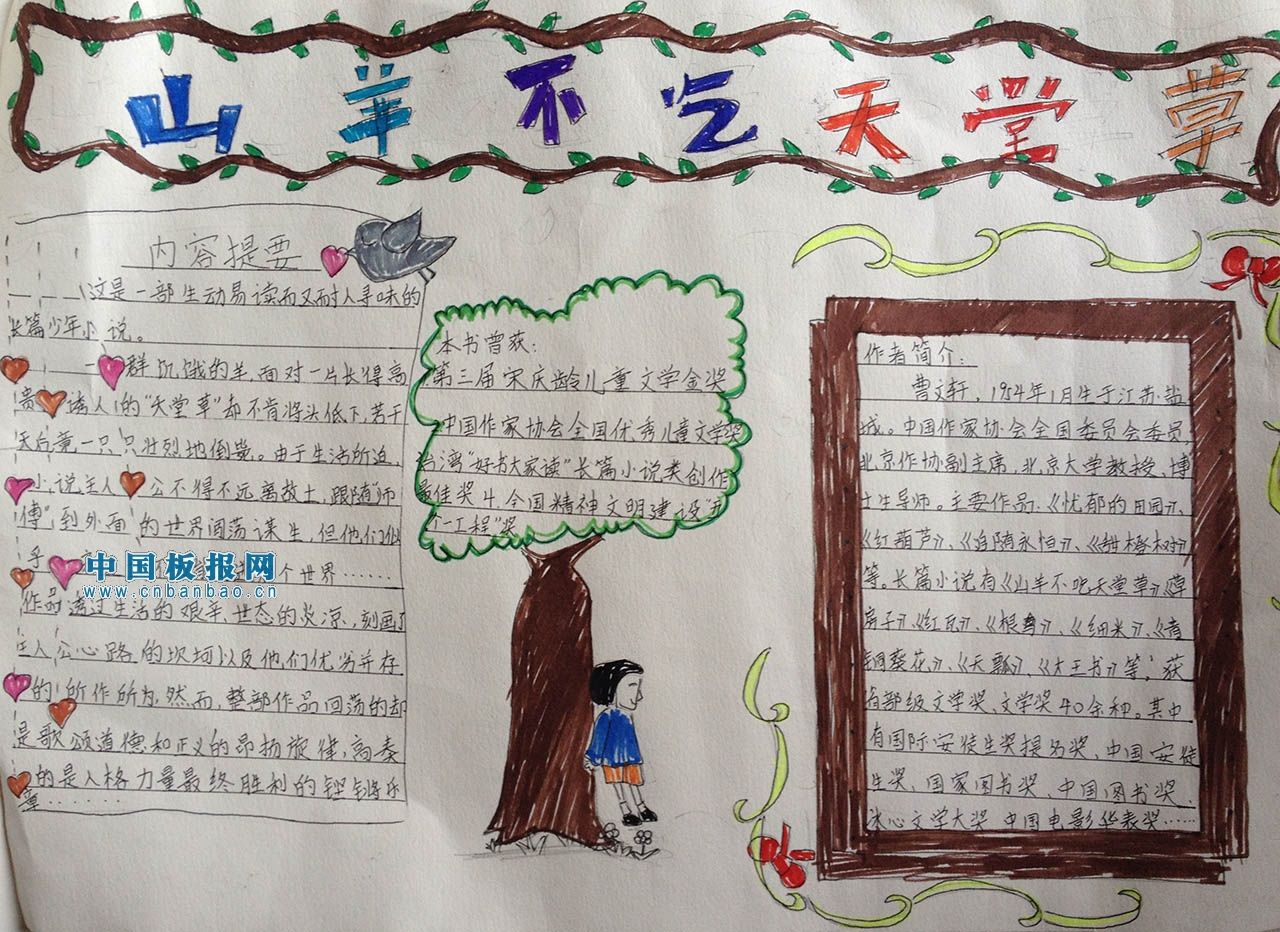 山羊不吃天堂草
内容提要
这是一部生动易读而又耐人寻味的
长篇少年小说。
一群饥饿的羊,面对一片长得高
贵 诱人的“天堂草”却不肯将头低下,若干
天后竟一只只壮烈地倒毙。由于生活所迫,
小说主人公不得不远离故土,跟随“师
傅”,到外面的世界闯荡谋生,但他们似
乎 个世界……
中国板报网
www.cnbanbao.cn
作品透过生活的艰辛、世态的炎凉,刻画了
主人公心路的坎坷以及他们优劣并存
的所作所为,然而,整部作品回荡的却
是歌颂道德和正义的昂扬旋律,高奏
的是人格力量最终胜利的铿锵乐
章………
本书曾获:
第三届宋庆龄儿童文学金奖
中国作家协会全国优秀儿童文学奖
台湾“好书大家读”长篇小说类创作
最佳奖4.全国精神文明建设“五
个一工程”奖
作者简介:
曹文轩,1954年1月生于江苏盐
城。中国作家协会全国委员会委员,
北京作协副主席,北京大学教授、博
士生导师。主要作品:《忧郁的田园》、
《红葫芦》、《追随永恒》、《甜橙树》
等。长篇小说有《山羊不吃天堂草》《草
房子》、《红瓦》、《根鸟》、《细米》、《青
铜葵花》、《天瓢》、《大王书》等,获
省部级文学奖、文学奖40余种。其中
有国际安徒生奖提名奖、中国安徒
生奖、国家图书奖、中国图书奖、
冰心文学大奖 中国电影华表奖……